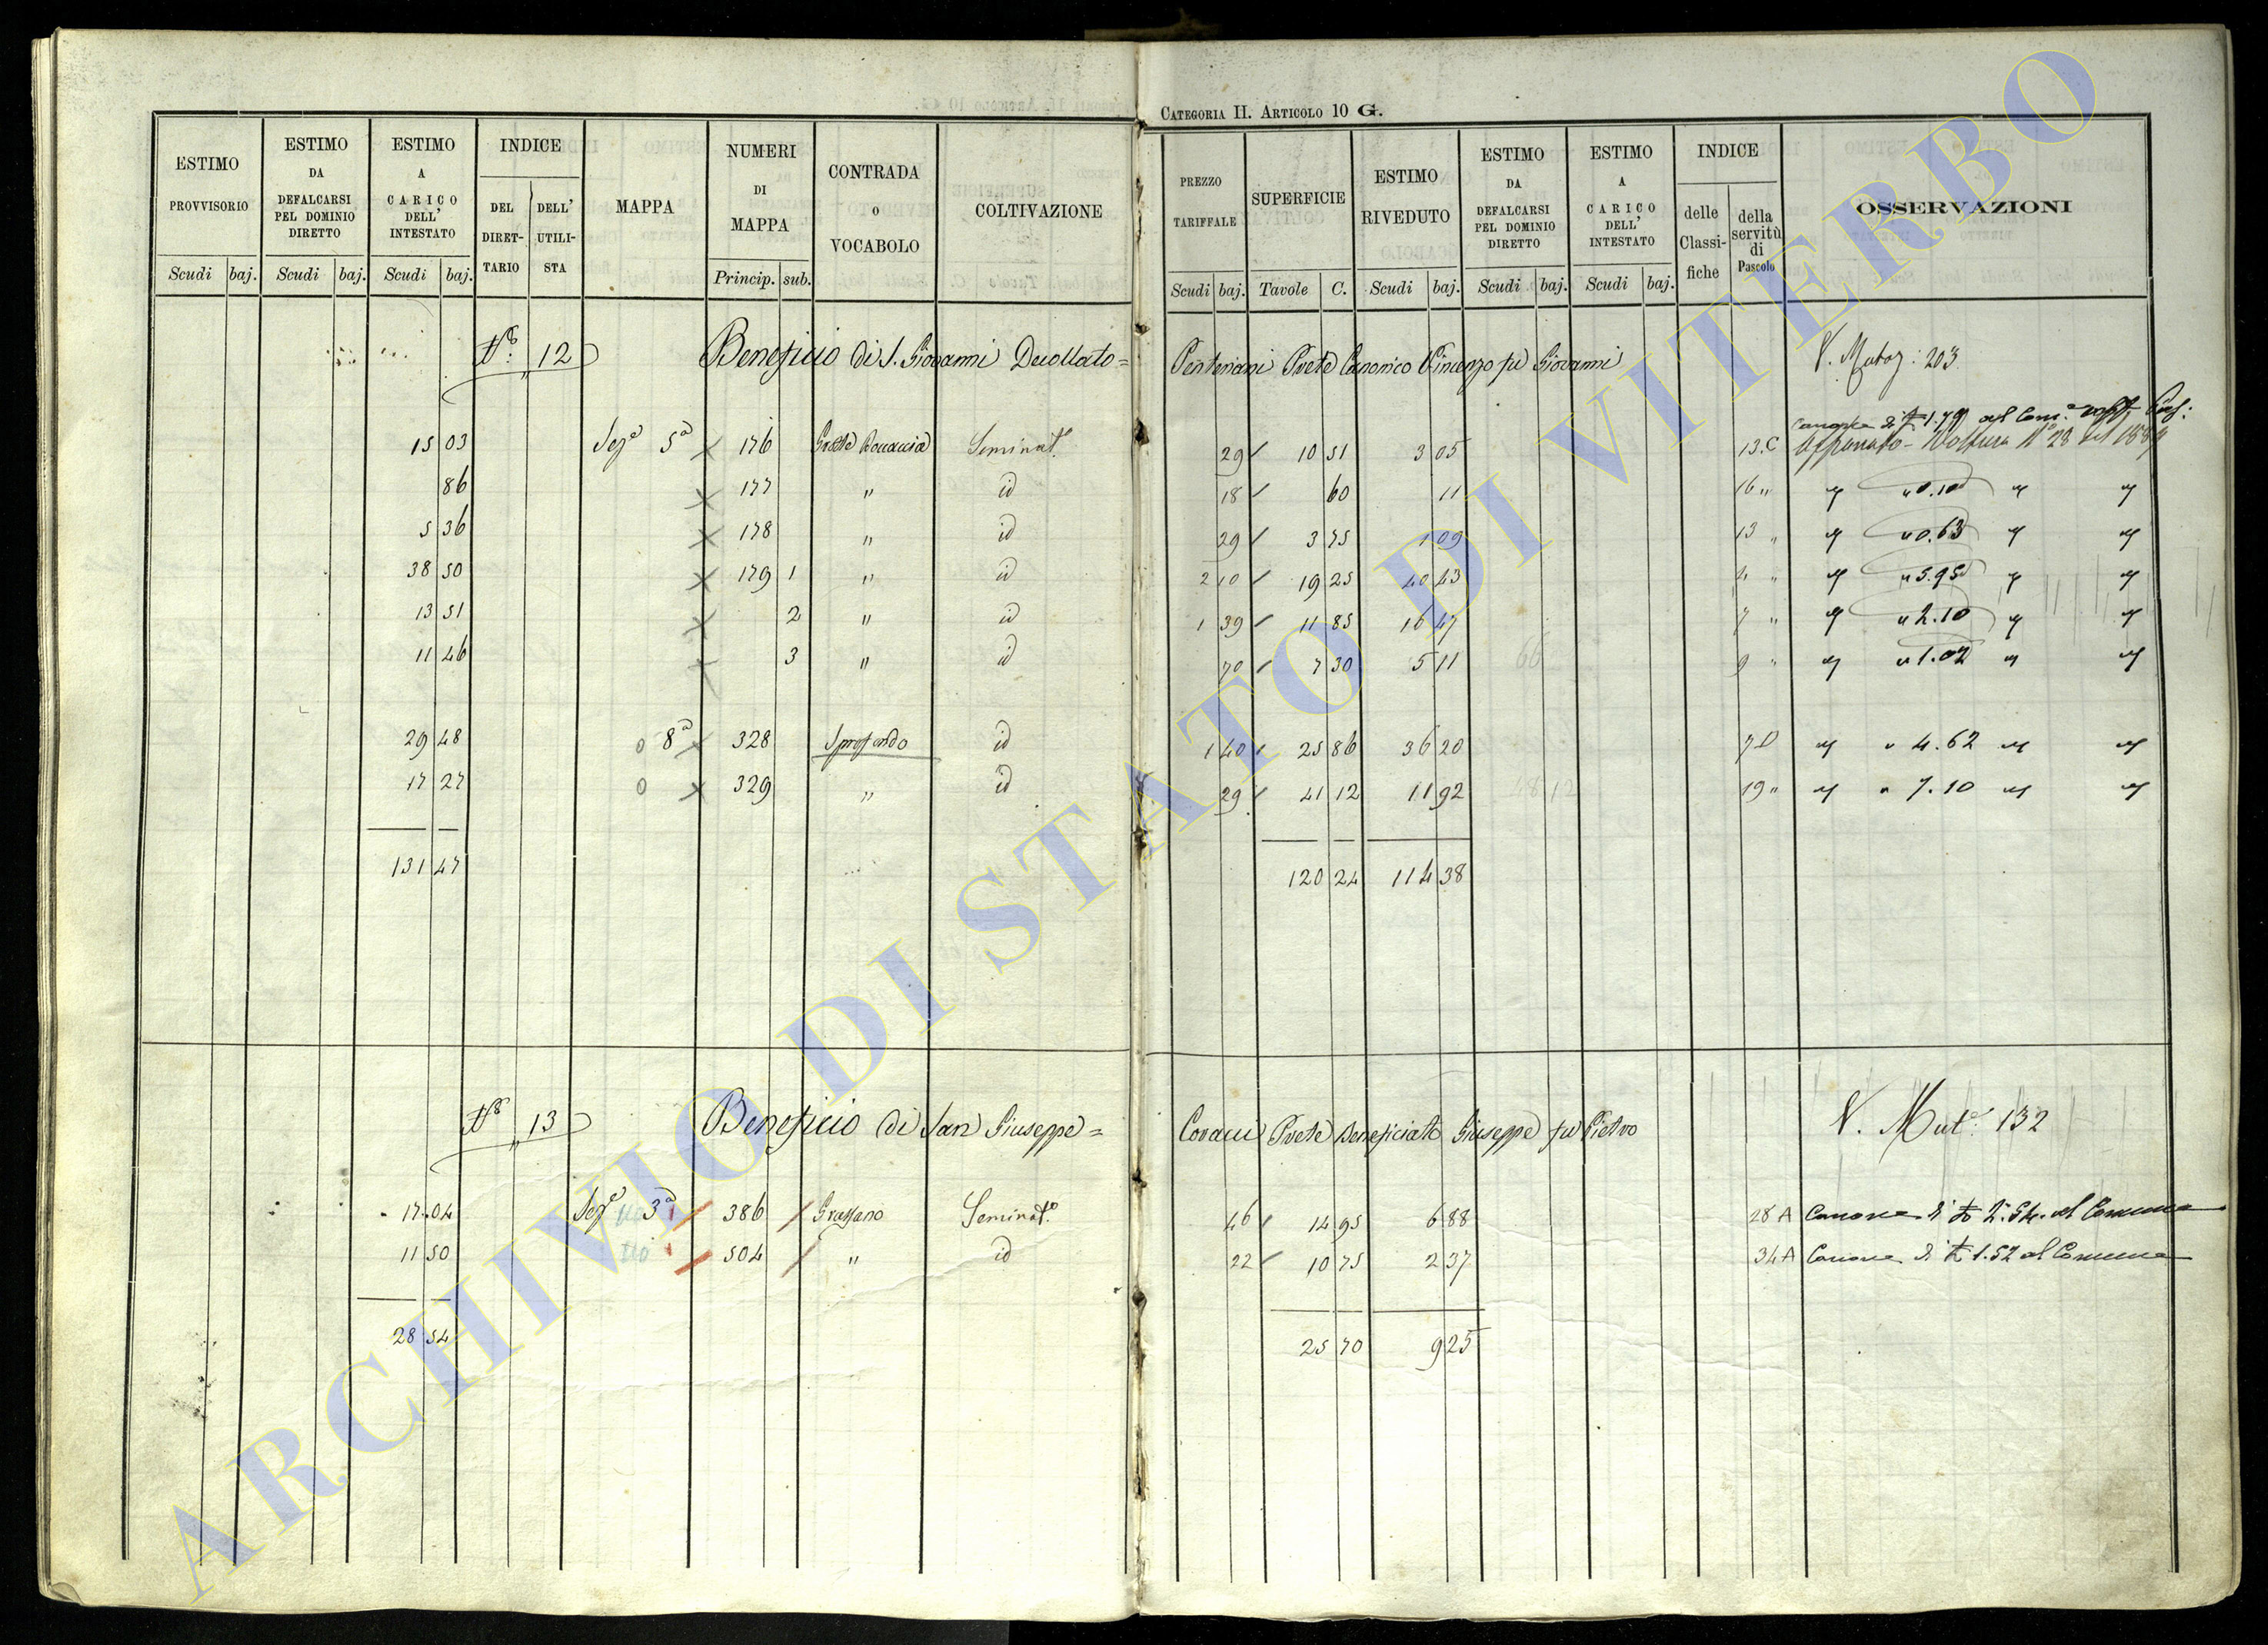 CATEGORIA II. ARTICOLO 10 G.
ESTIMO PROVVISORIO Scudi baj.
ESTIMO DA DEFALCARSI PEL DOMINIO DIRETTO Scudi baj.
ESTIMO A CARICO DELL' INTESTATO Scudi baj.
INDICE DEL DIRET- TARIO DELL' UTILI- STA
MAPPA
NUMERI DI MAPPA Princip. sub.
CONTRADA O VOCABOLO
COLTIVAZIONE
PREZZO TARIFFALE Scudi baj.
SUPERFICIE Tavole C.
ESTIMO RIVEDUTO Scudi baj.
ESTIMO DA DEFALCARSI PEL DOMINIO DIRETTO Scudi baj.
ESTIMO A CARICO DELL' INTESTATO Scudi baj.
INDICE delle Classi- fiche della servitù di Pascolo
OSSERVAZIONI
N.º 12 Beneficio di S. Giovanni Decollato = Prete Canonico Vincenzo fu Giovanni V. Mutaz: 203
Canone di 1.79 al Com.e
15 03 Sez.e 5a 176 Grotte Seminat.o 29 10 51 3 05 13.C Affrancato - Voltura N.º 28 del
86 177 " id 18 60 11 16 " " " 0.10 " "
5 36 178 " id 29 3 75 1 09 13 " " " 0.63 " "
38 50 179 1 " id 2 10 19 25 40 43 4 " " " 5.95 " "
13 51 2 " id 1 39 11 85 16 47 7 " " " 2.10 " "
11 46 3 " id 70 7 30 5 11 66 9 " " " 1.02 " "
29 48 0 8a 328 Sprofondo id 1 40 25 86 36 20 7 D " " 4.62 " "
17 27 0 329 " id 29 41 12 11 92 48 12 19 " " " 7.10 " "
131 47 120 24 114 38
N.º 13 Beneficio di San Giuseppe = Prete Beneficiato Giuseppe fu Pietro V. Mut.e 132
17 04 Sez.e 3a 386 Grassano Seminat.o 46 14 95 6 88 28 A Canone di 2.54. al Comune
11 50 504 " id 22 10 75 2 37 34 A Canone di 1.52 al Comune
28 54 25 70 9 25
ARCHIVIO DI STATO DI VITERBO